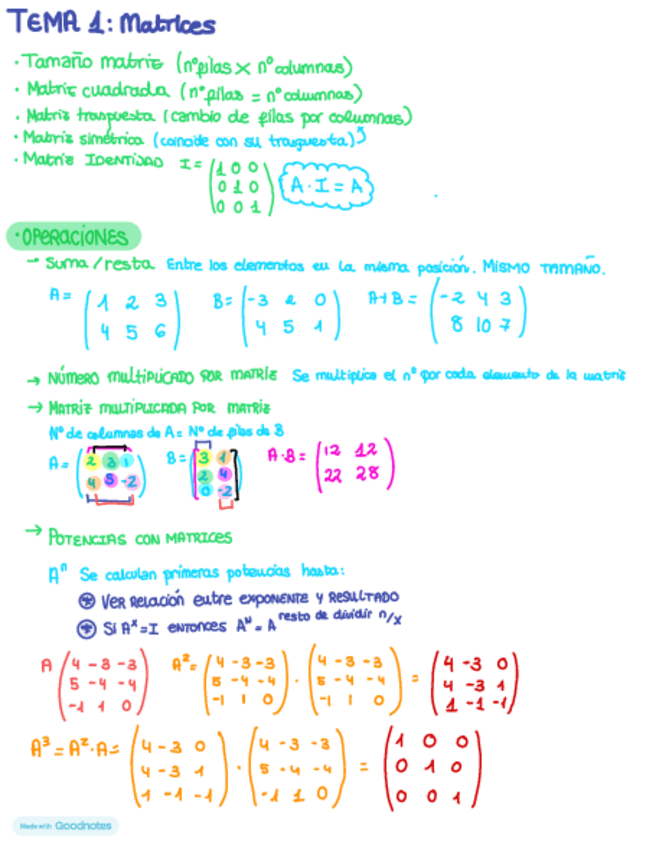 TEMA 1: Matrices
· Tamaño matriz (nº filas x nº columnas)
· Matriz cuadrada (nº filas = nº columnas)
· Matriz traspuesta (cambio de filas por columnas)
· Matriz simétrica (coincide con su traspuesta)
· Matriz IDENTIDAD I = (1 0 0 A · I = A
0 1 0
0 0 1)
· OPERACIONES
→ Suma/resta Entre los elementos en la misma posición. MISMO TAMAÑO.
A = (1 2 3 B = (-3 2 0 A+B = (-2 4 3
4 5 6) 4 5 1) 8 10 7)
→ NÚMERO MULTIPLICADO POR MATRIZ Se multiplica el nº por cada elemento de la matriz
→ MATRIZ MULTIPLICADA POR MATRIZ
Nº de columnas de A = Nº de filas de B
A = (2 3 1 B = (3 1 A·B = (12 12
4 5 -2) 2 4 22 28)
0 -2)
→ POTENCIAS CON MATRICES
Aⁿ Se calculan primeras potencias hasta:
⊛ VER RELACIÓN entre EXPONENTE Y RESULTADO
⊛ Si Aˣ = I ENTONCES Aᴺ = A resto de dividir n/x
A (4 -3 -3 A² = (4 -3 -3 · (4 -3 -3 = (4 -3 0
5 -4 -4 5 -4 -4 5 -4 -4 4 -3 1
-1 1 0) -1 1 0) -1 1 0) 1 -1 -1)
A³ = A²·A = (4 -3 0 · (4 -3 -3 = (1 0 0
4 -3 1 5 -4 -4 0 1 0
1 -1 -1) -1 1 0) 0 0 1)
Made with Goodnotes